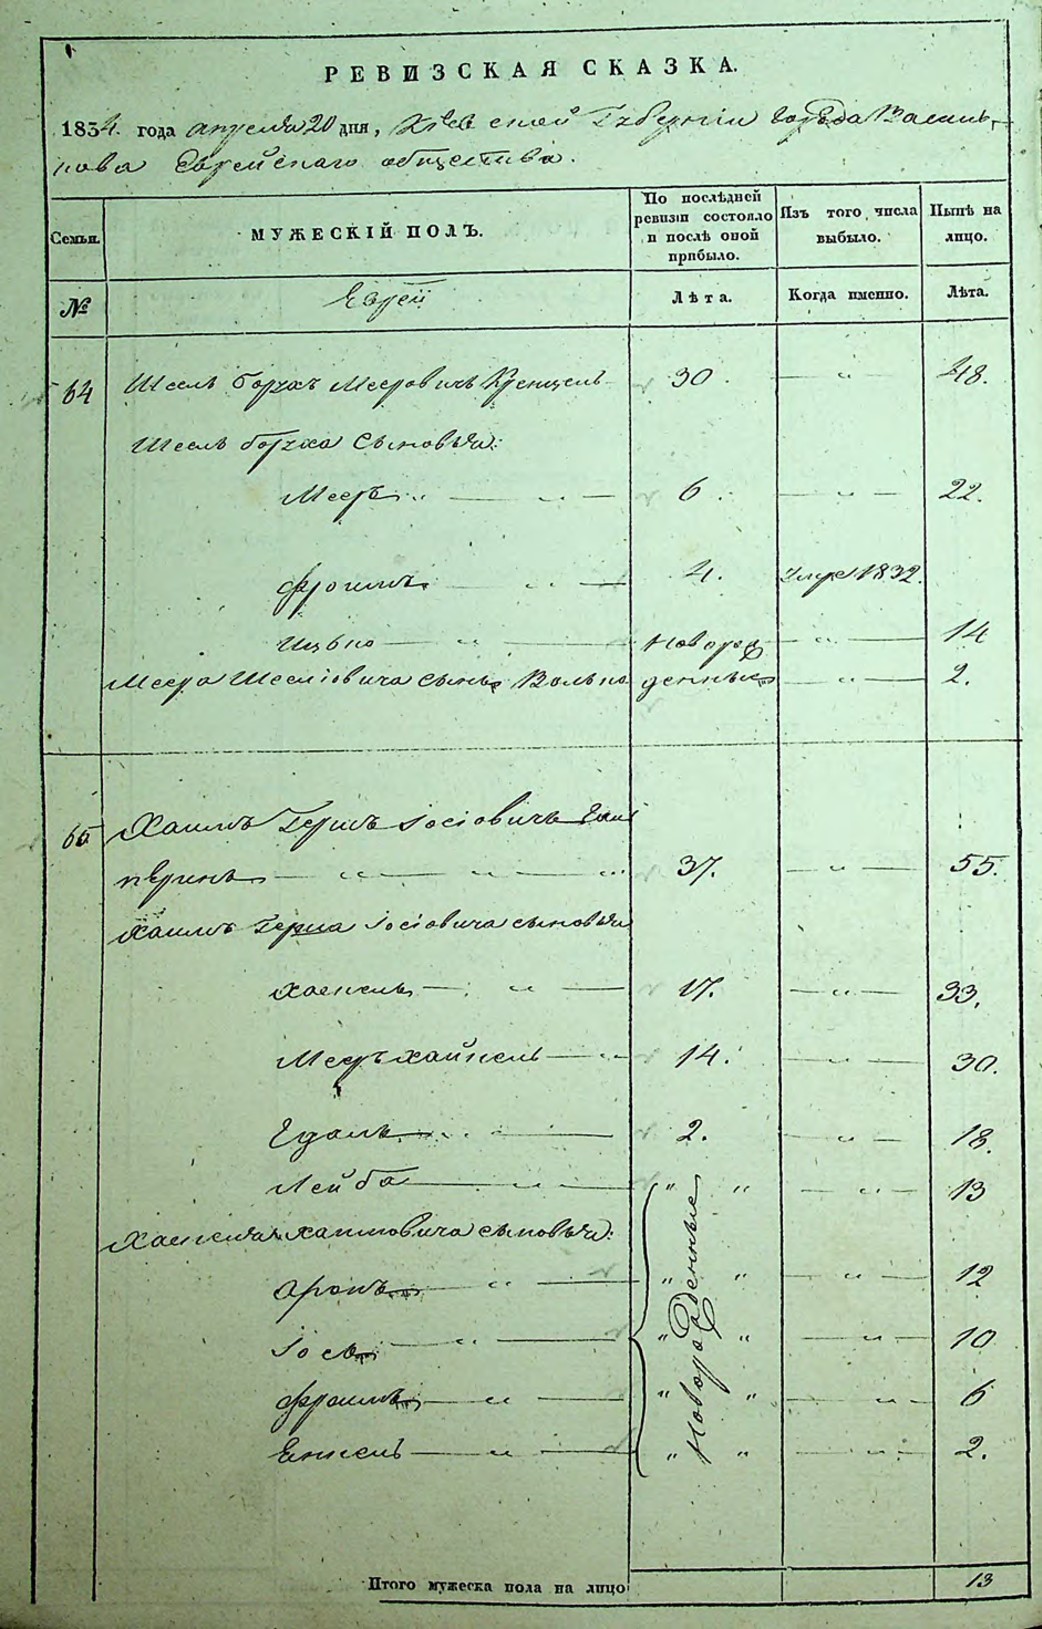 РЕВИЗСКАЯ СКАЗКА.
1834. года апреля 20 дня, Кіевской Губерніи города Василь-
кова Еврейскаго общества.
Семьи.
МУЖЕСКІЙ ПОЛЪ.
По послѣдней ревизіи состояло и послѣ оной прибыло.
Изъ того числа выбыло.
Нынѣ на лицо.
№
Еврей
Лѣта.
Когда именно.
Лѣта.
64 Шселъ Борухъ Мееровичъ 30. — „ — 48.
Боруха Сыновья:
Мееръ „ — „ — 6. — „ — 22.
Фроимъ — „ — 4. умре 1832.
Ицько — „ — Новорож- — „ — 14
Меера сынъ Волько денные — „ — 2.
65 Хаимъ Гершъ Іосіовичъ Гал
перинъ — „ — „ — „ 37. — „ — 55.
Хаимъ Герша Іосіовича сыновья
Хаскель — „ — 17. — „ — 33.
Мееръ Хаискель — „ 14. — „ — 30.
— „ — 2. — „ — 18.
Лейба — „ — „ „ — „ — 13
Хаскеля Хаимовича сыновья:
Аронъ — „ — „ „ — „ — 12
Іось — „ — „ „ — „ — 10
Фроимъ — „ — „ „ — „ — 6
Енкель — „ — „ „ — „ — 2.
Новорожденные
Итого мужеска пола на лицо 13